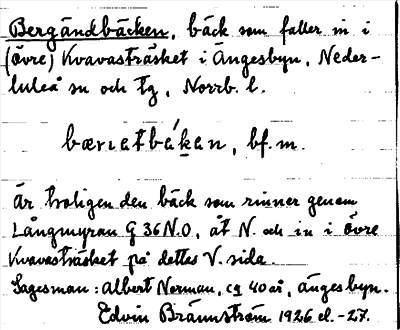 Bergändbäcken, bäck som faller in i
(övre) Kvavasträsket i Ängesbyn, Neder-
luleå sn och tg, Norrb. l.
bærıatbákan, bf. m.
är troligen den bäck som rinner genom
Långmyran G 36 N.O, åt N. och in i övre
Kvavasträsket på dettes V. sida.
Sagesman: Albert Norman, ca 40 år, Ängesbyn.
Edvin Brännström 1926 el. -27.